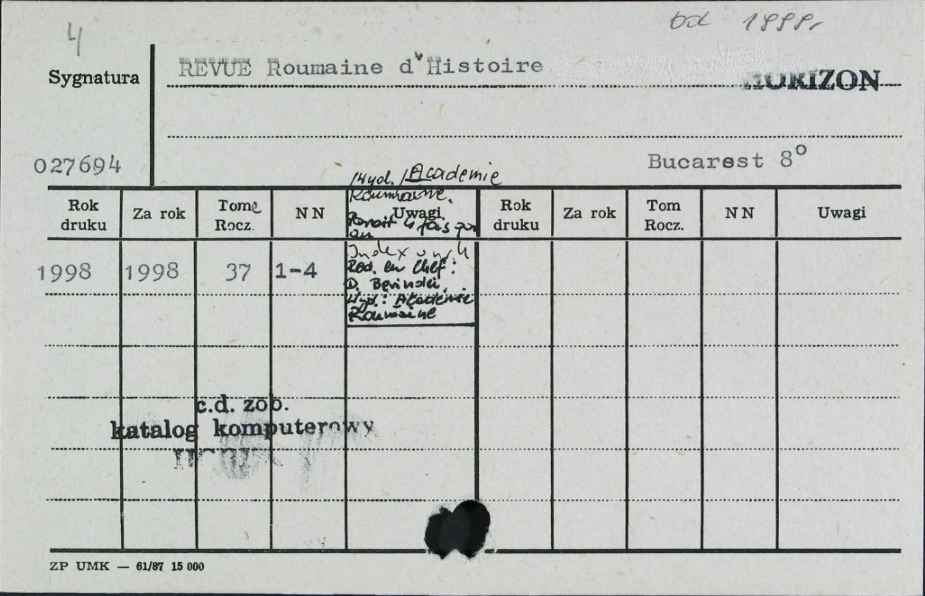 4
od 1999r
Sygnatura
REVUE Roumaine d'Histoire
HORIZON
027694
Bucarest 8°
/Wyd./Academie
Roumaine.
Parait 4 fois par
an
Rok druku
Za rok
Tome Rocz.
N N
Uwagi
Rok druku
Za rok
Tom Rocz.
N N
Uwagi
1998
1998
37
1-4
Index w n. 4
Red. en Chef:
D. Berindei.
Wyd.: Academie
Roumaine
c.d. zob.
katalog komputerowy
ZP UMK — 61/87 15 000